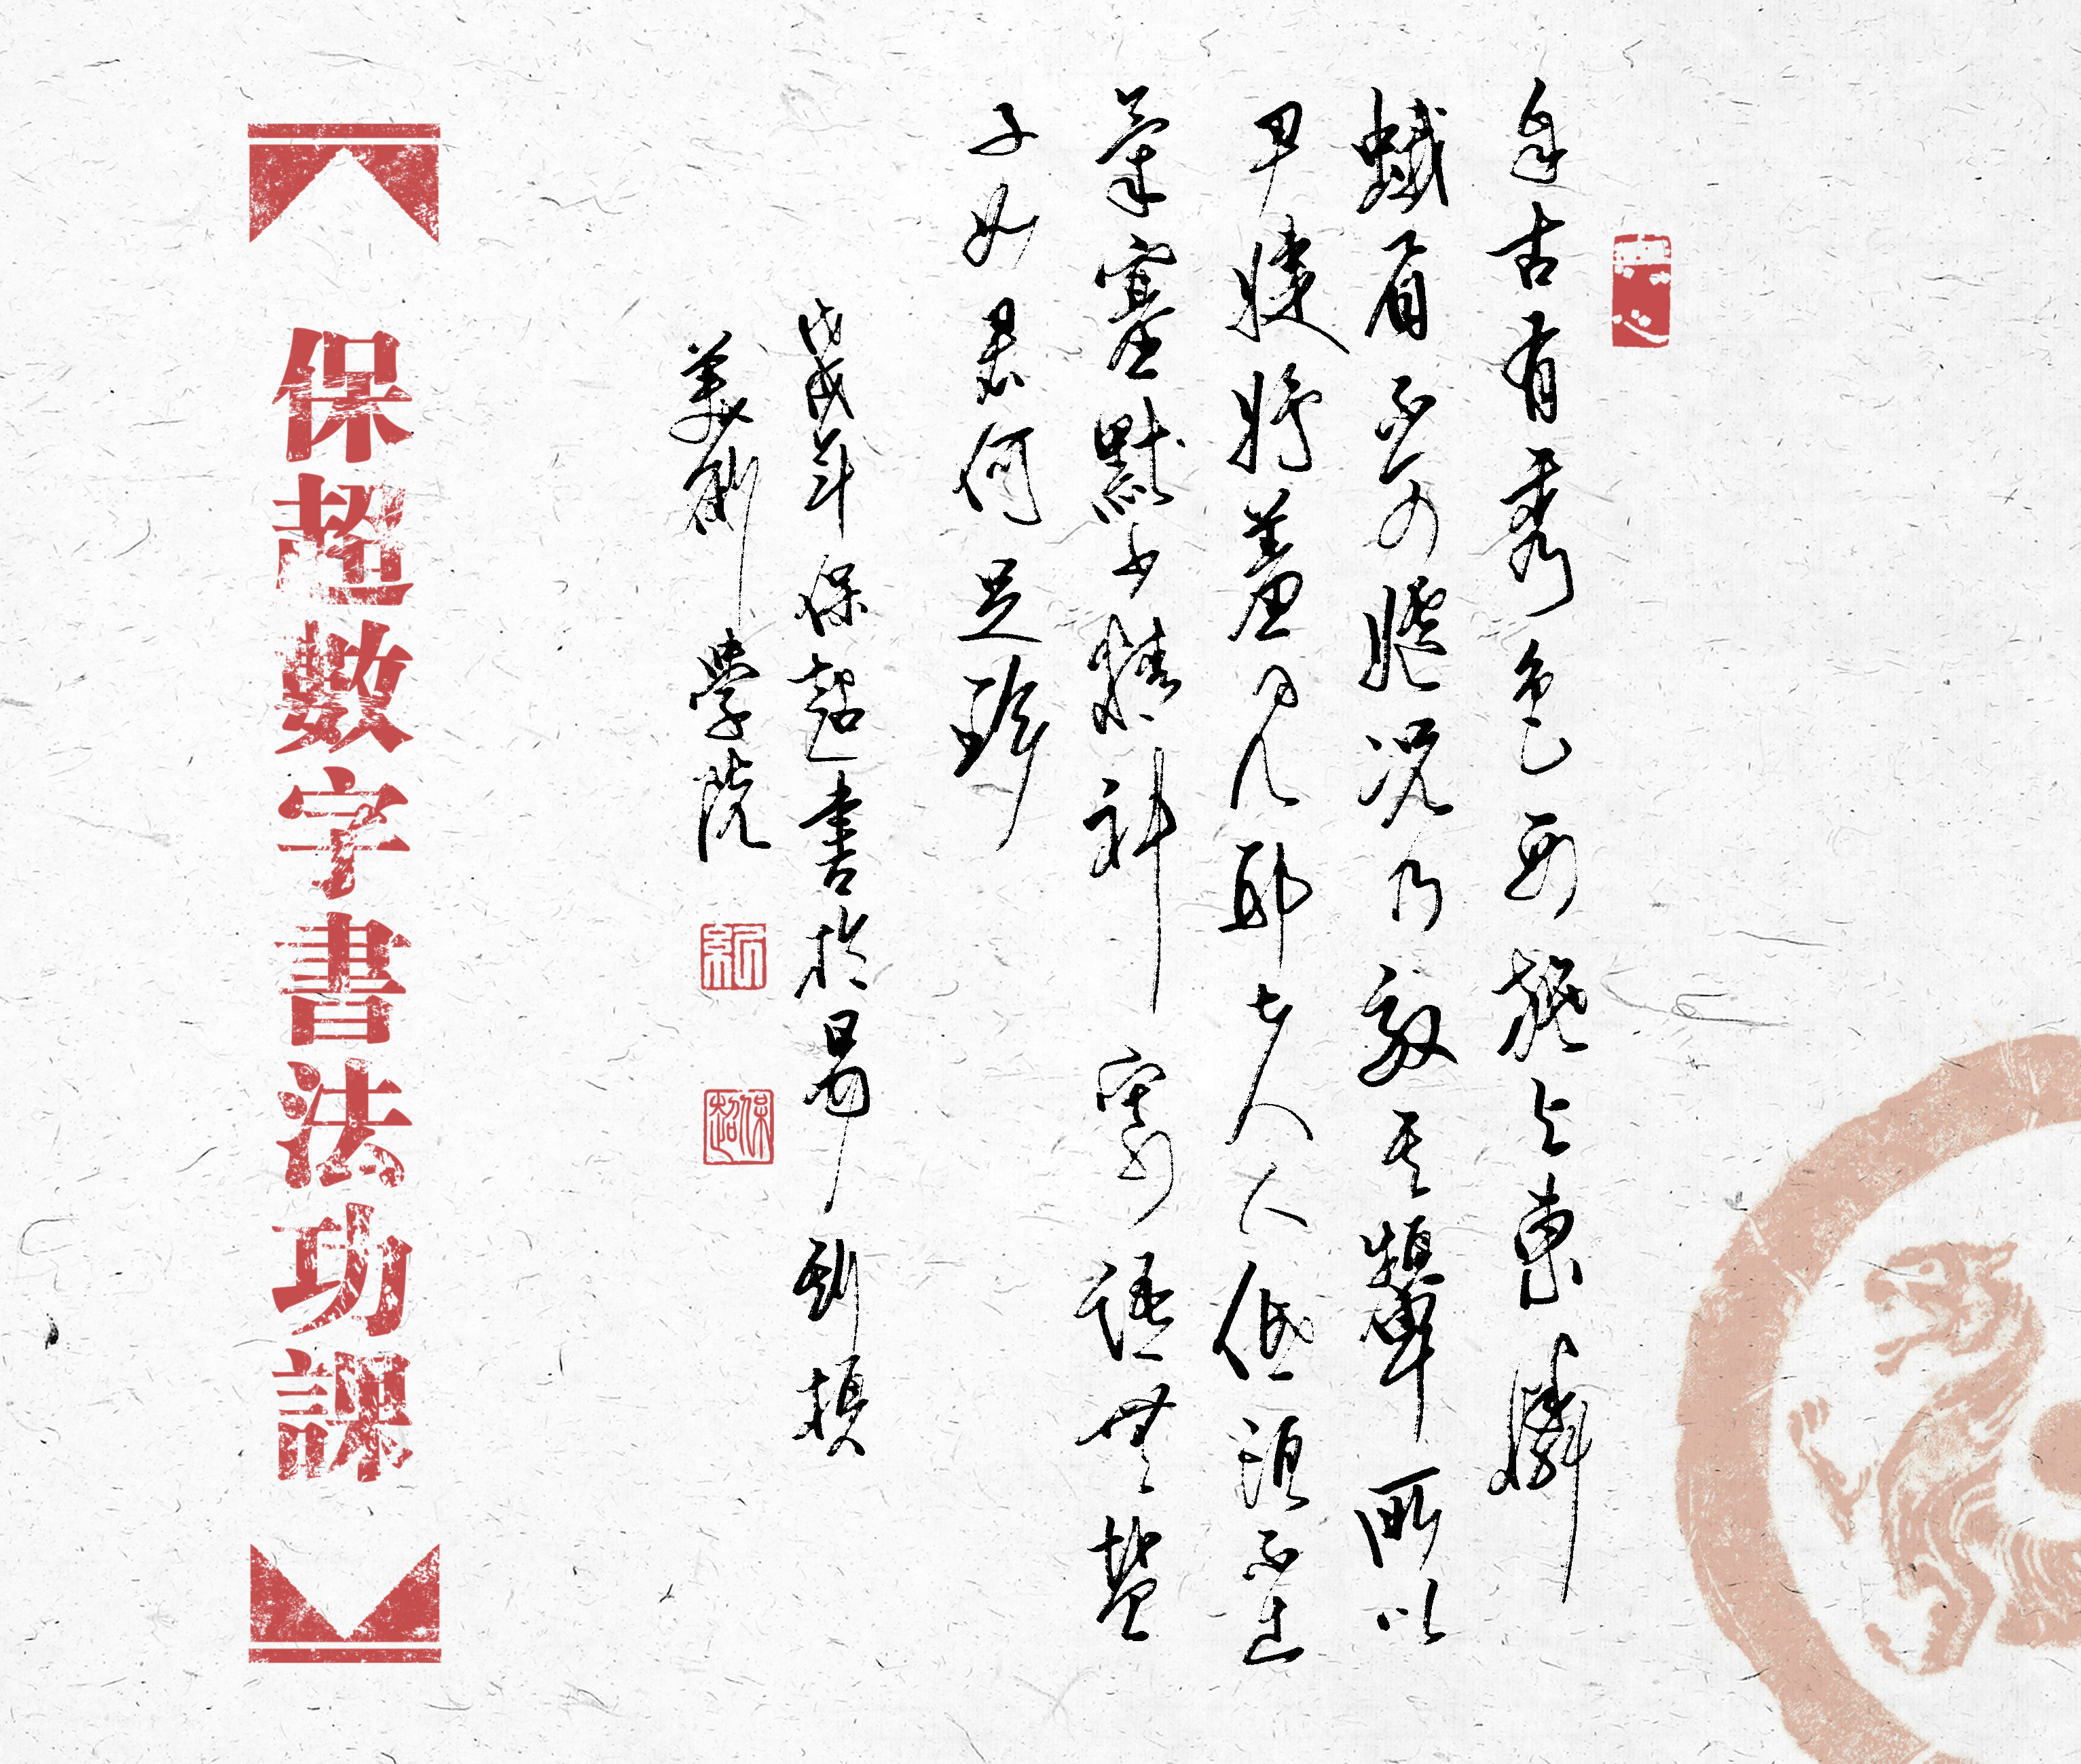 自古有秀色西施与東隣
蛾眉不可妬況乃效其顰所以
尹婕妤羞見邢夫人低頭不出
氣塞默少精神寄語無鹽
子如君何足珍
戊戌年保超書於
美術學院
保超
保超數字書法功課